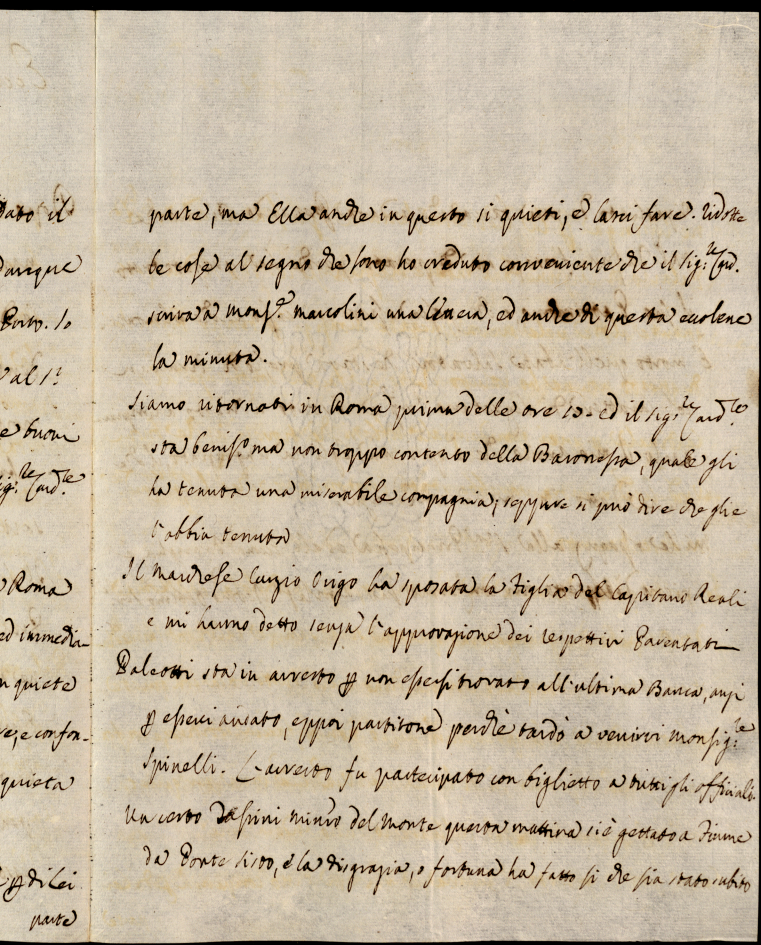 dato il
Dunque
Porto. Io
al S.r
e buoni
sig.re Card.le
Roma
ed immedia-
n quiete
re, e confon-
quieta
p di Lei
parte
parte, ma Ella anche in questo si quieti, e lasci fare. Ridotte
le cose al segno che sono ho creduto conveniente che il Sig.re Card.
scriva a Mons.r Marcolini una , ed anche di questa eccolene
la minuta.
Siamo ritornati in Roma prima delle ore 13. ed il Sig.re Card.le
sta beniss.o ma non troppo contento della Baronessa, quale gli
ha tenuta una miserabile compagnia; seppure si può dire che glie
l'abbia tenuta
Il Marchese Curzio Origo ha sposata la Figlia del Capitano Reali
e mi hanno detto senza l'approvazione dei respettivi Parentati
Paleotti sta in arresto p non essersi trovato all'ultima Banca, anzi
p esservi andato, eppoi partitone perchè tardò a venirvi Monsig.re
Spinelli. L'arresto fu partecipato con biglietto a tutti gli officiali.
Un certo minro del Monte questa mattina si è gettato a Fiume
da Ponte Sisto, e la disgrazia, o fortuna ha fatto si che sia stato subito